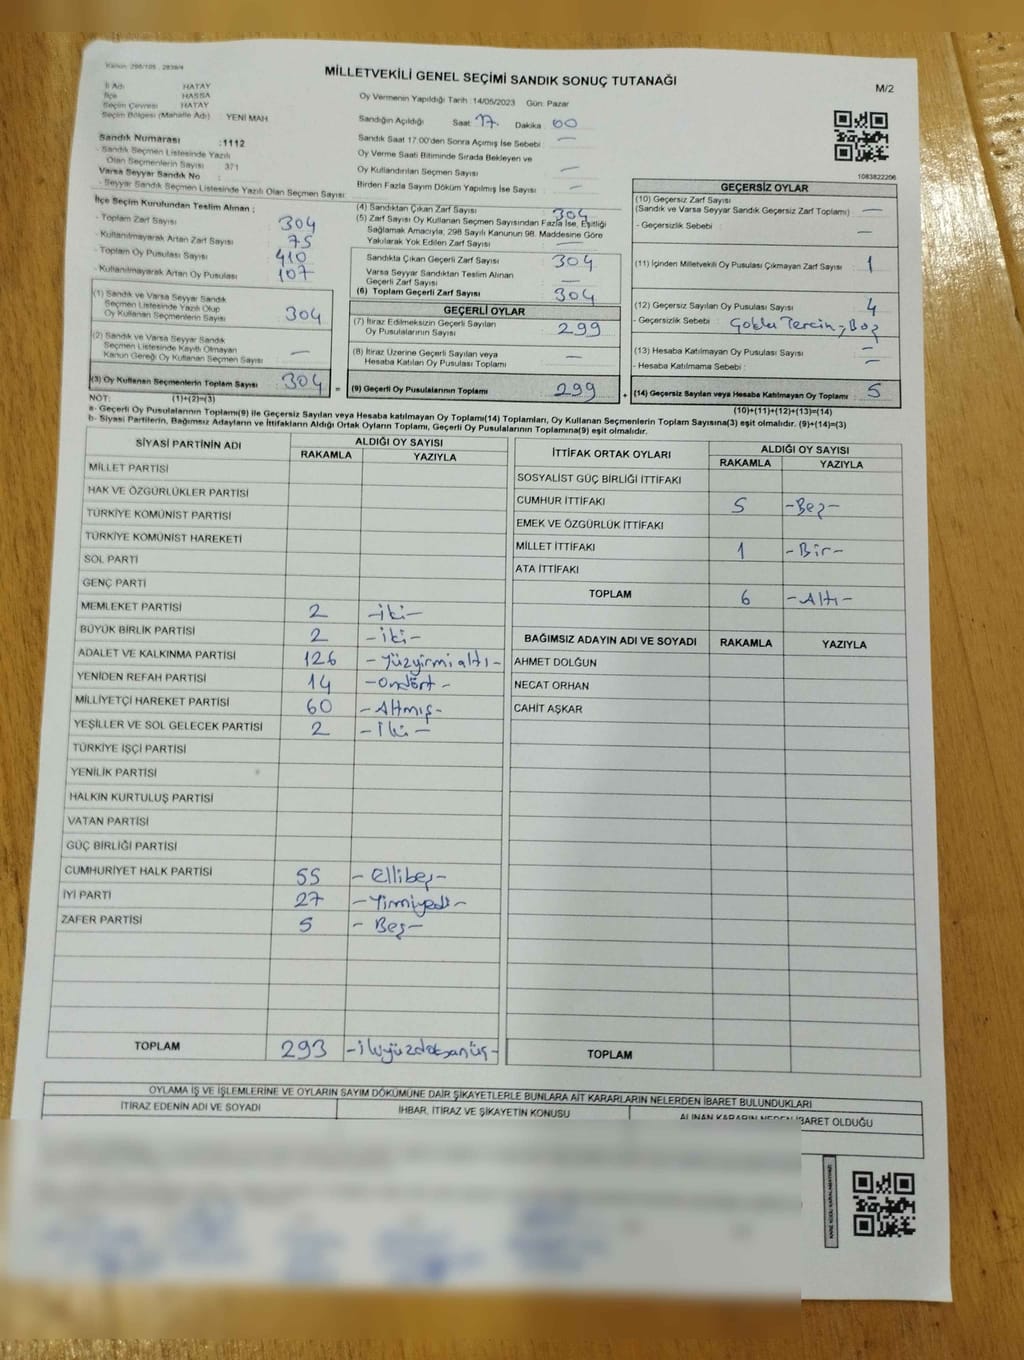 Kanun: 298/105 , 2839/4
MİLLETVEKİLİ GENEL SEÇİMİ SANDIK SONUÇ TUTANAĞI
M/2
İl Adı HATAY
İlçe HASSA
Seçim Çevresi HATAY
Seçim Bölgesi (Mahalle Adı) YENİ MAH
Sandık Numarası :1112
- Sandık Seçmen Listesinde Yazılı
Olan Seçmenlerin Sayısı 371
Varsa Seyyar Sandık No
- Seyyar Sandık Seçmen Listesinde Yazılı Olan Seçmen Sayısı:
Oy Vermenin Yapıldığı Tarih :14/05/2023 Gün: Pazar
Sandığın Açıldığı Saat 17. Dakika 00
Sandık Saat 17:00'den Sonra Açımış İse Sebebi : —
Oy Verme Saati Bitiminde Sırada Bekleyen ve
Oy Kullandırılan Seçmen Sayısı : —
Birden Fazla Sayım Döküm Yapılmış İse Sayısı : —
1083822206
İlçe Seçim Kurulundan Teslim Alınan ;
- Toplam Zarf Sayısı : 304
- Kullanılmayarak Artan Zarf Sayısı : 75
- Toplam Oy Pusulası Sayısı : 410
- Kullanılmayarak Artan Oy Pusulası : 107
(1) Sandık ve Varsa Seyyar Sandık
Seçmen Listesinde Yazılı Olup
Oy Kullanan Seçmenlerin Sayısı : 304
(2) Sandık ve Varsa Seyyar Sandık
Seçmen Listesinde Kayıtlı Olmayan
Kanun Gereği Oy Kullanan Seçmen Sayısı : —
(3) Oy Kullanan Seçmenlerin Toplam Sayısı : 304 =
(4) Sandıktan Çıkan Zarf Sayısı : 304
(5) Zarf Sayısı Oy Kullanan Seçmen Sayısından Fazla İse, Eşitliği
Sağlamak Amacıyla, 298 Sayılı Kanunun 98. Maddesine Göre
Yakılarak Yok Edilen Zarf Sayısı : —
Sandıkta Çıkan Geçerli Zarf Sayısı : 304
Varsa Seyyar Sandıktan Teslim Alınan
Geçerli Zarf Sayısı : —
(6) Toplam Geçerli Zarf Sayısı : 304
GEÇERLİ OYLAR
(7) İtiraz Edilmeksizin Geçerli Sayılan
Oy Pusulalarının Sayısı : 299
(8) İtiraz Üzerine Geçerli Sayılan veya
Hesaba Katılan Oy Pusulaları Toplamı : —
(9) Geçerli Oy Pusulalarının Toplamı : 299 +
GEÇERSİZ OYLAR
(10) Geçersiz Zarf Sayısı
(Sandık ve Varsa Seyyar Sandık Geçersiz Zarf Toplamı) : —
- Geçersizlik Sebebi : —
(11) İçinden Milletvekili Oy Pusulası Çıkmayan Zarf Sayısı : 1
(12) Geçersiz Sayılan Oy Pusulası Sayısı : 4
- Geçersizlik Sebebi : Çoklu Tercih, Boş
(13) Hesaba Katılmayan Oy Pusulası Sayısı : —
- Hesaba Katılmama Sebebi : —
(14) Geçersiz Sayılan veya Hesaba Katılmayan Oy Toplamı : 5
NOT: (1)+(2)=(3)
(10)+(11)+(12)+(13)=(14)
a- Geçerli Oy Pusulalarının Toplamı(9) ile Geçersiz Sayılan veya Hesaba katılmayan Oy Toplamı(14) Toplamları, Oy Kullanan Seçmenlerin Toplam Sayısına(3) eşit olmalıdır. (9)+(14)=(3)
b- Siyasi Partilerin, Bağımsız Adayların ve İttifakların Aldığı Ortak Oyların Toplamı, Geçerli Oy Pusulalarının Toplamına(9) eşit olmalıdır.
SİYASİ PARTİNİN ADI ALDIĞI OY SAYISI
RAKAMLA YAZIYLA
MİLLET PARTİSİ
HAK VE ÖZGÜRLÜKLER PARTİSİ
TÜRKİYE KOMÜNİST PARTİSİ
TÜRKİYE KOMÜNİST HAREKETİ
SOL PARTİ
GENÇ PARTİ
MEMLEKET PARTİSİ 2 -iki-
BÜYÜK BİRLİK PARTİSİ 2 -iki-
ADALET VE KALKINMA PARTİSİ 126 -Yüzyirmialtı-
YENİDEN REFAH PARTİSİ 14 -Ondört-
MİLLİYETÇİ HAREKET PARTİSİ 60 -Altmış-
YEŞİLLER VE SOL GELECEK PARTİSİ 2 -İki-
TÜRKİYE İŞÇİ PARTİSİ
YENİLİK PARTİSİ
HALKIN KURTULUŞ PARTİSİ
VATAN PARTİSİ
GÜÇ BİRLİĞİ PARTİSİ
CUMHURİYET HALK PARTİSİ 55 -Ellibeş-
İYİ PARTİ 27 -Yirmiyedi-
ZAFER PARTİSİ 5 -Beş-
TOPLAM 293 -ikiyüzdoksanüç-
İTTİFAK ORTAK OYLARI ALDIĞI OY SAYISI
RAKAMLA YAZIYLA
SOSYALİST GÜÇ BİRLİĞİ İTTİFAKI
CUMHUR İTTİFAKI 5 -Beş-
EMEK VE ÖZGÜRLÜK İTTİFAKI
MİLLET İTTİFAKI 1 -Bir-
ATA İTTİFAKI
TOPLAM 6 -Altı-
BAĞIMSIZ ADAYIN ADI VE SOYADI RAKAMLA YAZIYLA
AHMET DOLĞUN
NECAT ORHAN
CAHİT AŞKAR
TOPLAM
OYLAMA İŞ VE İŞLEMLERİNE VE OYLARIN SAYIM DÖKÜMÜNE DAİR ŞİKAYETLERLE BUNLARA AİT KARARLARIN NELERDEN İBARET BULUNDUKLARI
İTİRAZ EDENİN ADI VE SOYADI İHBAR, İTİRAZ VE ŞİKAYETİN KONUSU ALINAN KARARIN NEDEN İBARET OLDUĞU